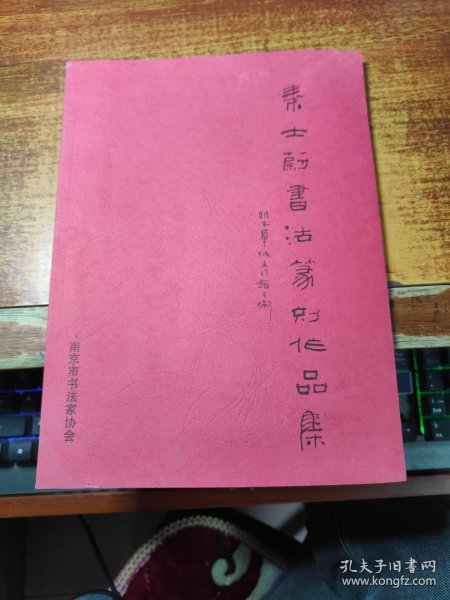 秦士蔚書法篆刻作品集
南京市书法家协会
孔夫子旧书网
www.kongfz.com